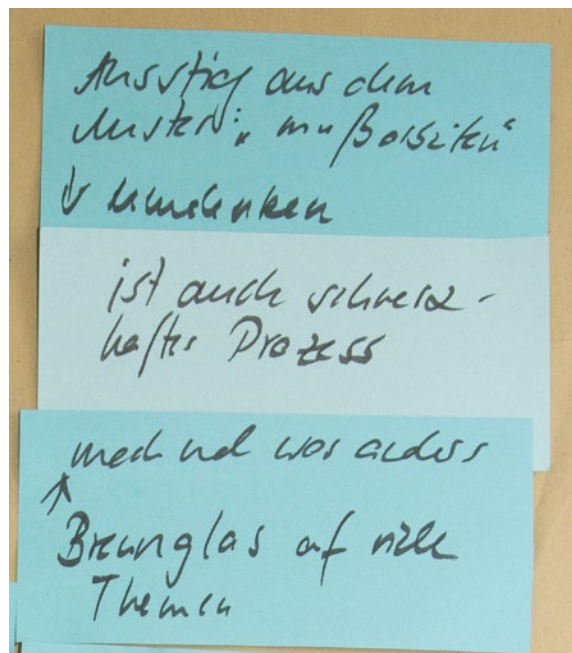 Ausstieg aus dem
Muster: „muß arbeiten“
↓ Umdenken
ist auch schmerz-
hafter Prozess
mach mal was anders
↑
Brennglas auf viele
Themen